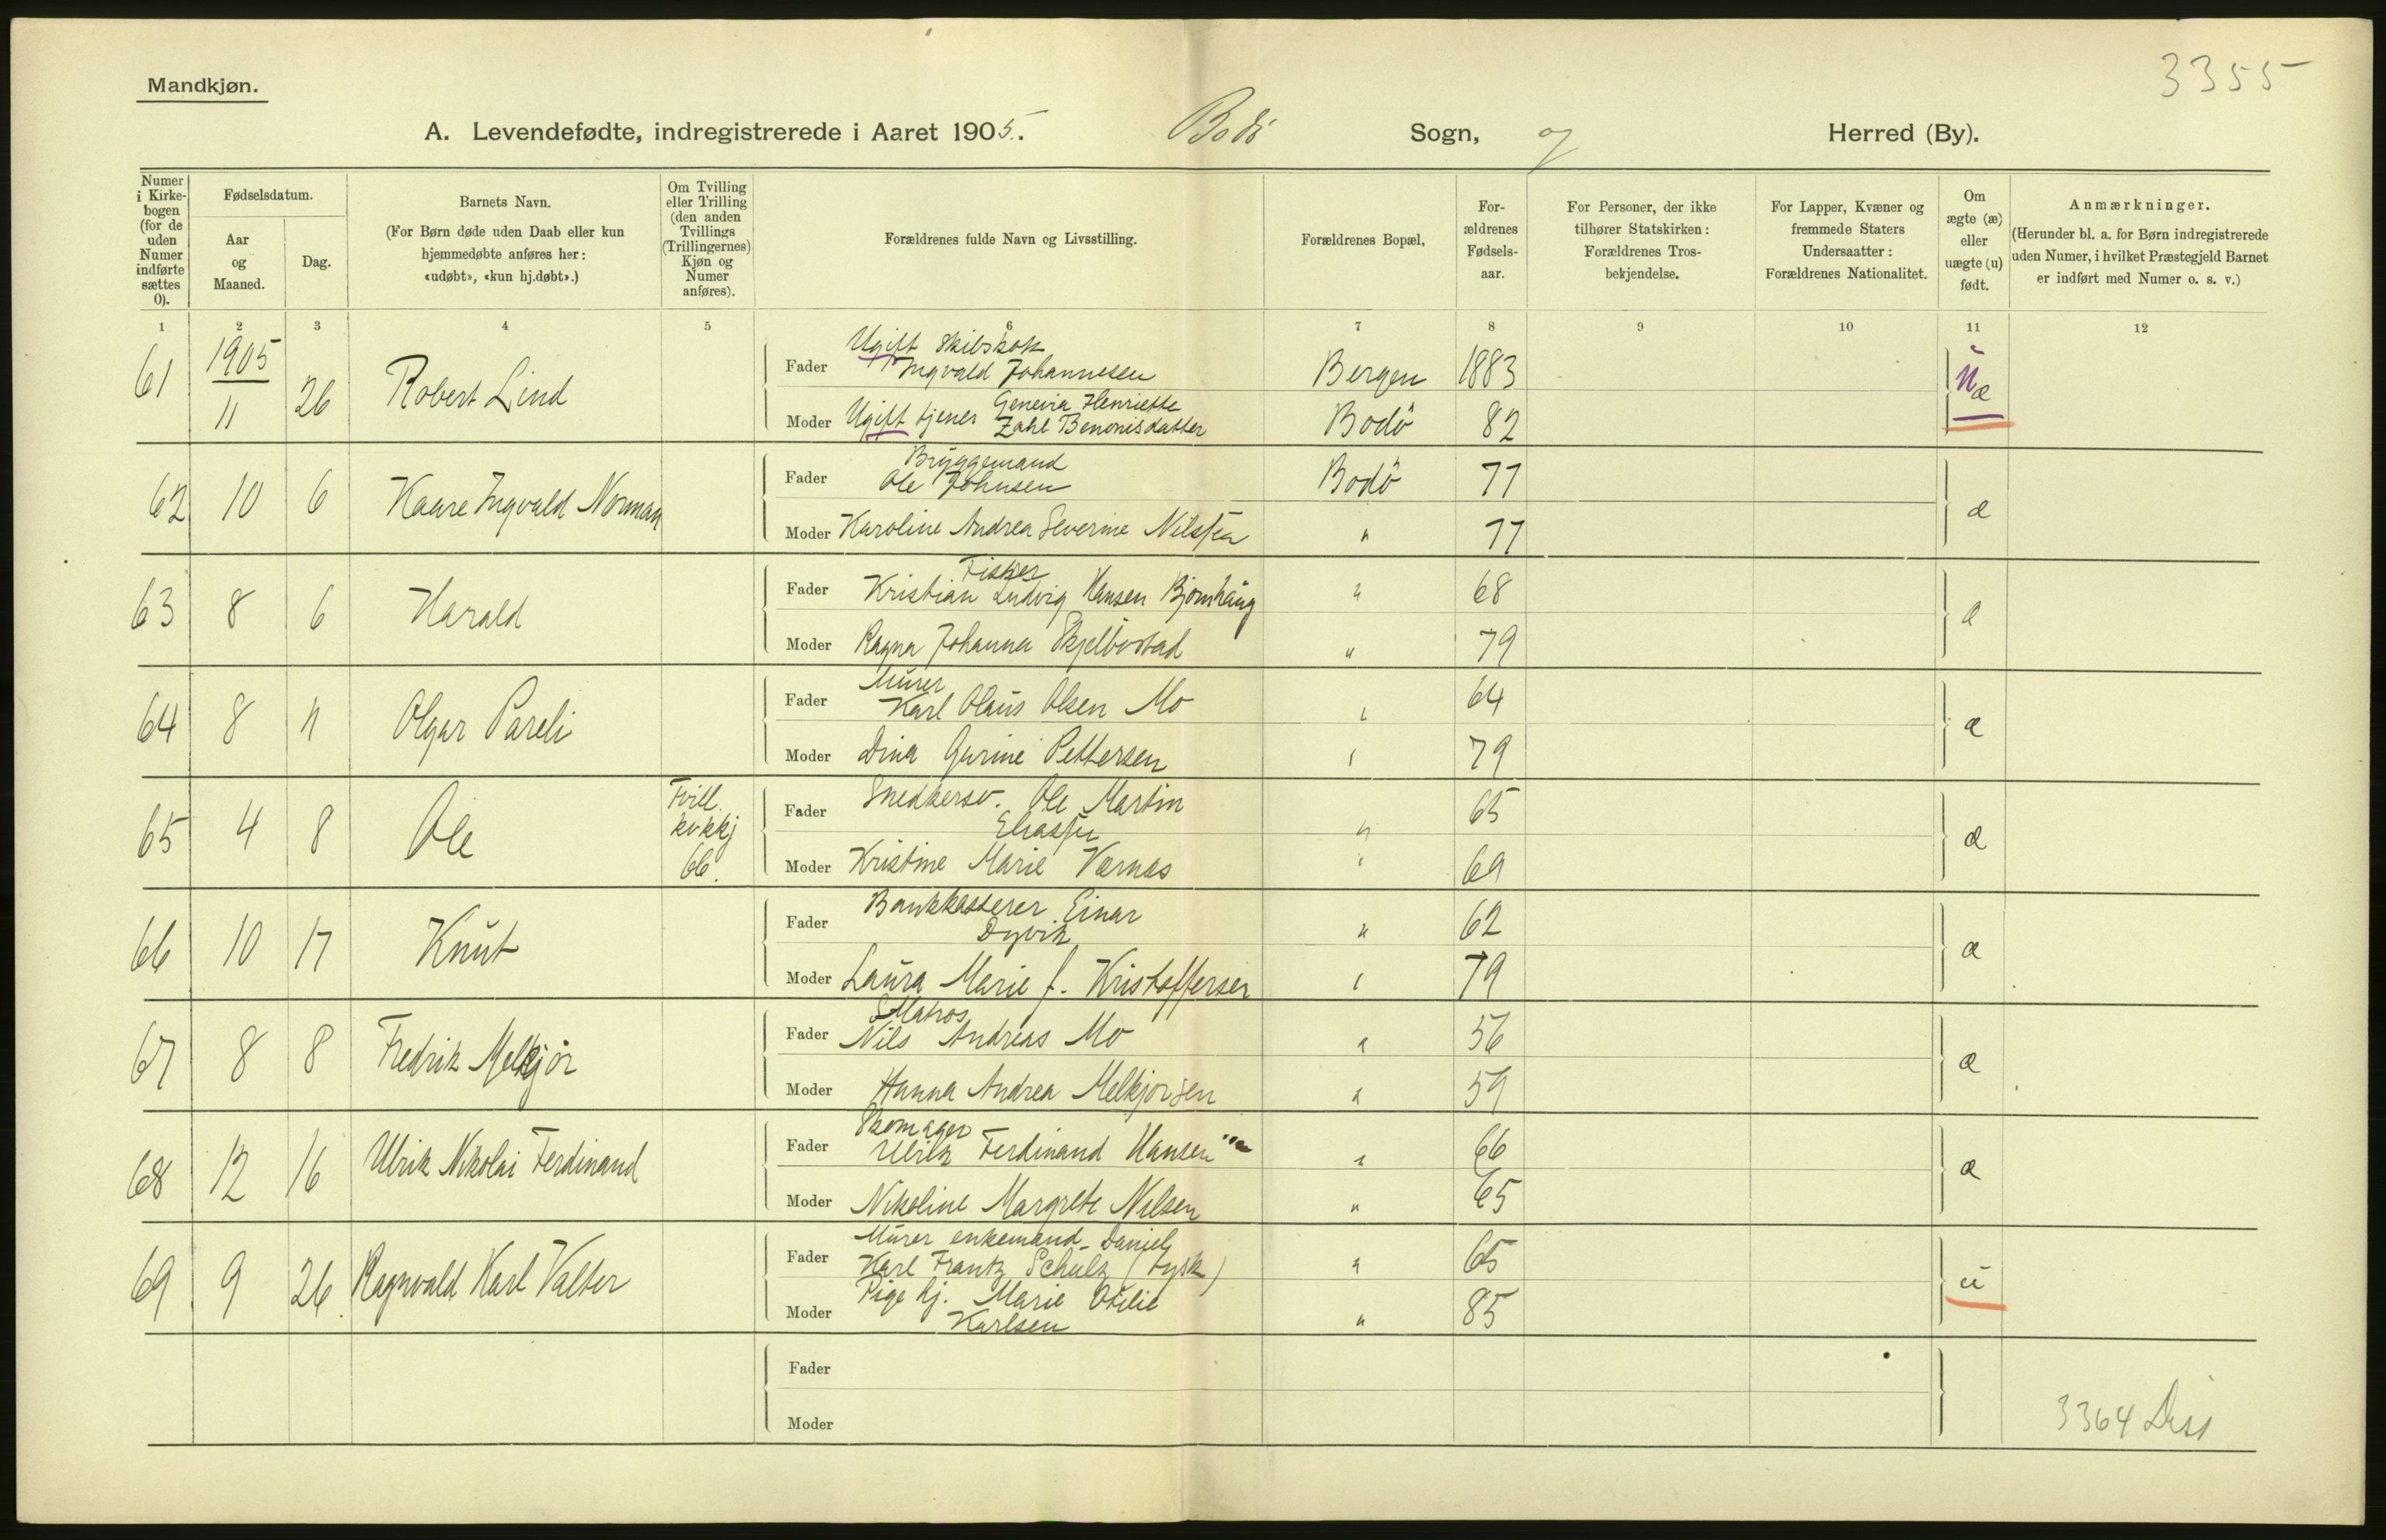 3355
Mandkjøn.
A. Levendefødte, indregistrerede i Aaret 1905. Bodö Sogn, og Herred (By).
Numer i Kirkebogen (for de uden Numer indførte sættes 0).
Fødselsdatum.
Aar og Maaned.
Dag.
Barnets Navn.
(For Børn døde uden Daab eller kun hjemmedøbte anføres her: «udøbt», «kun hj.døbt».)
Om Tvilling eller Trilling (den anden Tvillings (Trillingernes) Kjøn og Numer anføres).
Forældrenes fulde Navn og Livsstilling.
Forældrenes Bopæl,
For-ældrenes Fødsels-aar.
For Personer, der ikke tilhører Statskirken: Forældrenes Tros-bekjendelse.
For Lapper, Kvæner og fremmede Staters Undersaatter: Forældrenes Nationalitet.
Om ægte (æ) eller uægte (u) født.
Anmærkninger.
(Herunder bl. a. for Børn indregistrerede uden Numer, i hvilket Præstegjeld Barnet er indført med Numer o. s. v.)
1 2 3 4 5 6 7 8 9 10 11 12
61 1905 11 26 Robert Lind
Fader Ugift Skibskok
Ingvald Johannesen Bergen 1883
Moder Ugift tjener Genevia Henriette
Zahl Benonisdatter Bodö 82
u æ
62 10 6 Kaare Ingvald Norman
Fader Bryggemand
Ole Johnsen Bodö 77
Moder Karoline Andrea Severine Nilsen " 77
æ
63 8 6 Harald
Fader Fisker
Kristian Ludvig Hansen Bjornhaug " 68
Moder Ragna Johanna Skjelbostad " 79
æ
64 8 11 Olgar Pareli
Fader Murer
Karl Olaus Olsen Mo " 64
Moder Dina Gurine Pettersen " 79
æ
65 4 8 Ole
Tvill. kvkkj 66.
Fader Snedkersv. Ole Martin
Eliassen " 65
Moder Kristine Marie Værnes " 69
æ
66 10 17 Knut
Fader Bankkasserer Einar
Dyvik " 62
Moder Laura Marie f. Kristoffersen " 79
æ
67 8 8 Fredrik Melkjør
Fader Matros
Nils Andreas Mo " 56
Moder Hanna Andrea Melkjorsen " 59
æ
68 12 16 Ulrik Nikolai Ferdinand
Fader Skomager
Ulrik Ferdinand Hansen " 66
Moder Nikoline Margrete Nilsen " 65
æ
69 9 26 Ragnvald Karl Valter
Fader Murer enkemand Daniel
Karl Frantz Schulz (tysk) " 65
Moder Pige hj. Marie Otilie
Karlsen " 85
u
Fader
Moder
3364 Diss